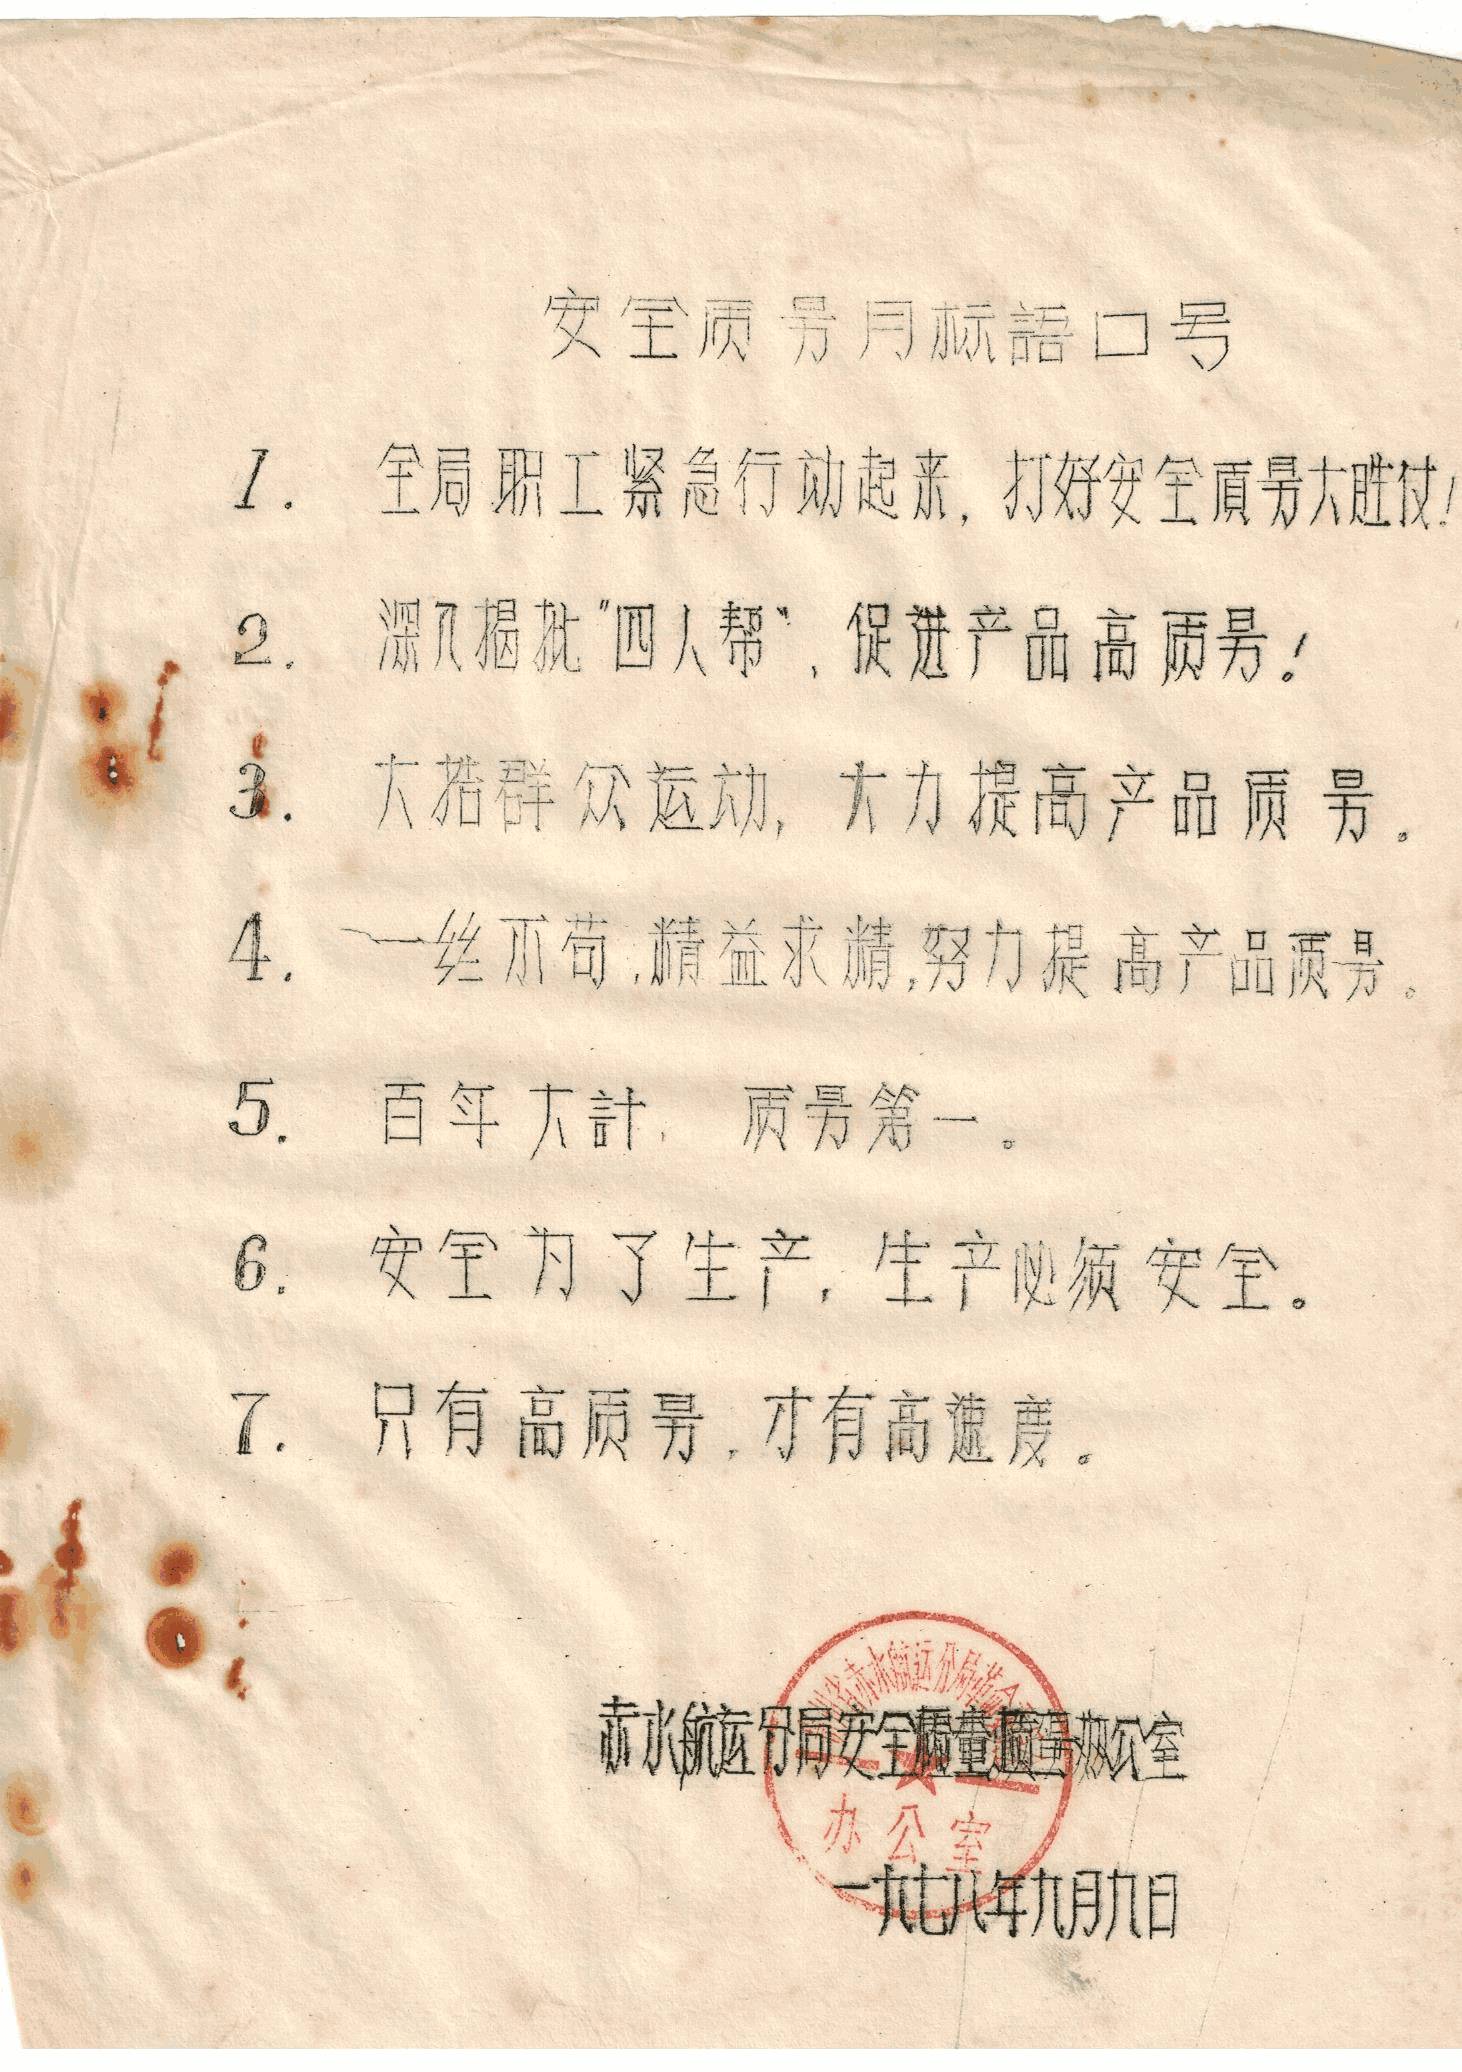 安全质量月标語口号
1. 全局职工紧急行动起来,打好安全质量大胜仗!
2. 深入揭批"四人帮",促进产品高质量!
3. 大搞群众运动,大力提高产品质量。
4. 一丝不苟,精益求精,努力提高产品质量。
5. 百年大計,质量第一。
6. 安全为了生产,生产必须安全。
7. 只有高质量,才有高速度。
省赤水航运分局革命
赤水航运分局安全质量办公室
办公室
一九七八年九月九日